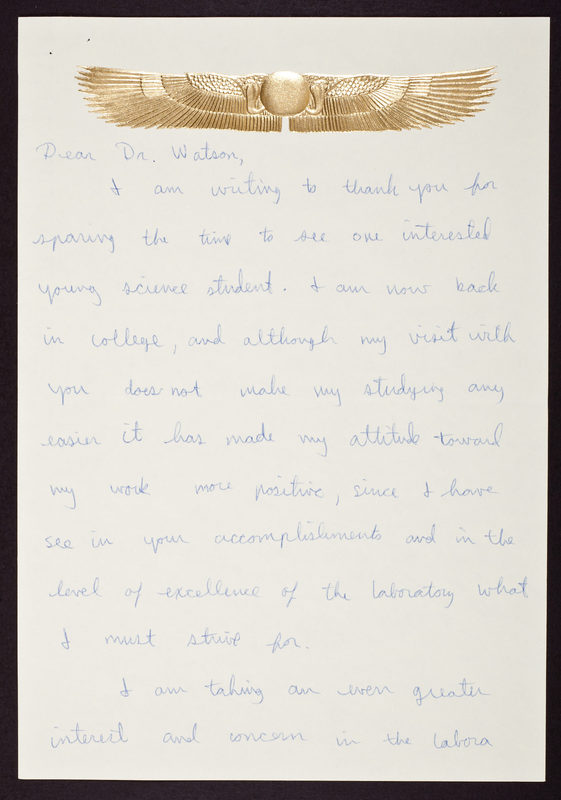 Dear Dr. Watson,
I am writing to thank you for
sparing the time to see one interested
young science student. I am now back
in college, and although my visit with
you does not make my studying any
easier it has made my attitude toward
my work more positive, since I have
see in your accomplishments and in the
level of excellence of the laboratory what
I must strive for.
I am taking an even greater
interest and concern in the labora